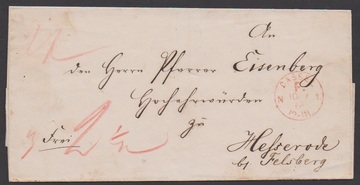 An
den Herrn Pfarrer Eisenberg
Hochehrwürden
zu
Frei
Hesserode
bei Felsberg